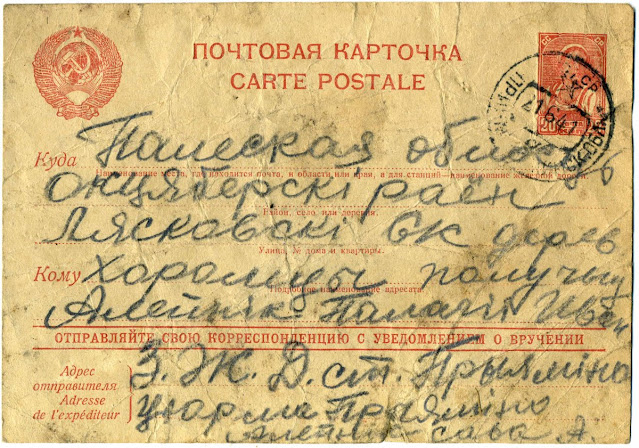 ПОЧТОВАЯ КАРТОЧКА
CARTE POSTALE
21 6 41
20
Куда Палеская область
Наименование места, где находится почта, и области или края, а для станций—наименование железной дороги
Октяберскі раен
Район, село или деревня
Лясковскі СК дерев
Улица, № дома и квартиры.
Кому Хоромцы получыц
Подробное наименование адресата
Алейнік Палагіі Иван
ОТПРАВЛЯЙТЕ СВОЮ КОРРЕСПОНДЕНЦИЮ С УВЕДОМЛЕНИЕМ О ВРУЧЕНИИ
Адрес отправителя
Adresse de l'expéditeur
З. Ж. Д. ст. Прыяміно
Прыяміно
Алейнік Сава